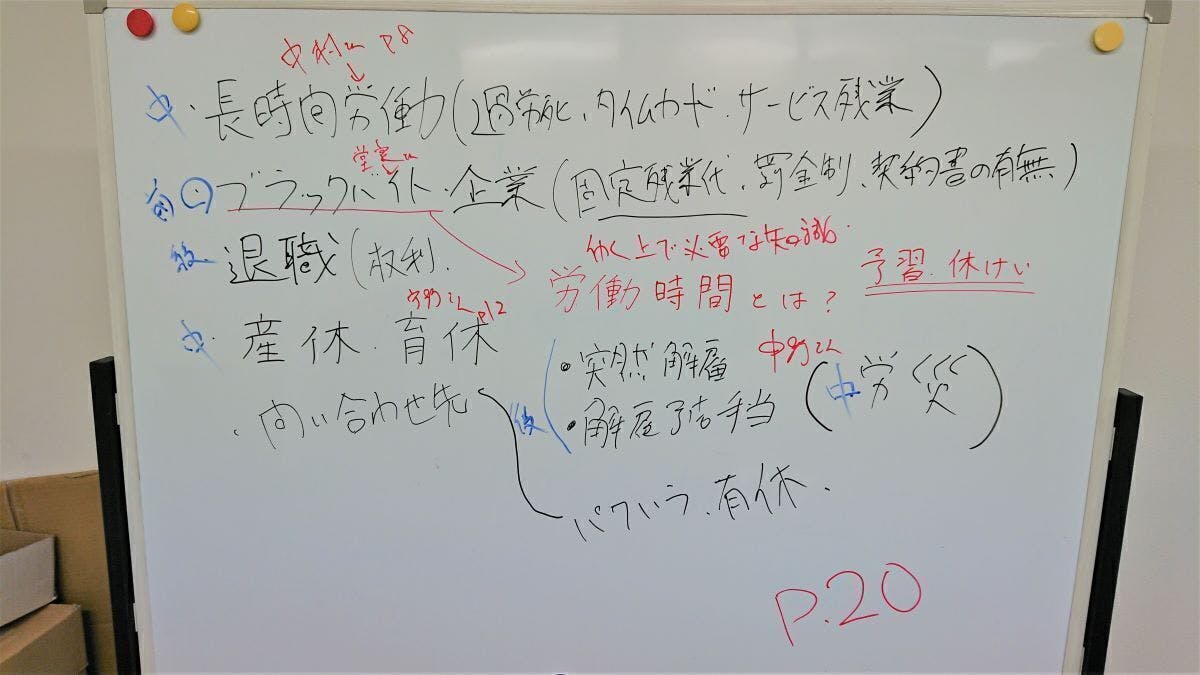 p8
中・長時間労働(過労死、タイムカード・サービス残業)
前 ブラックバイト・企業(固定残業代、罰金制、契約書の有無)
後・退職(权利.
働く上で必要な知識.
労働時間とは?
予習・休けい
p12
中・産休・育休
・突然解雇
後
・解雇予告手当
(中労災)
・問い合わせ先
パワハラ、有休.
P.20